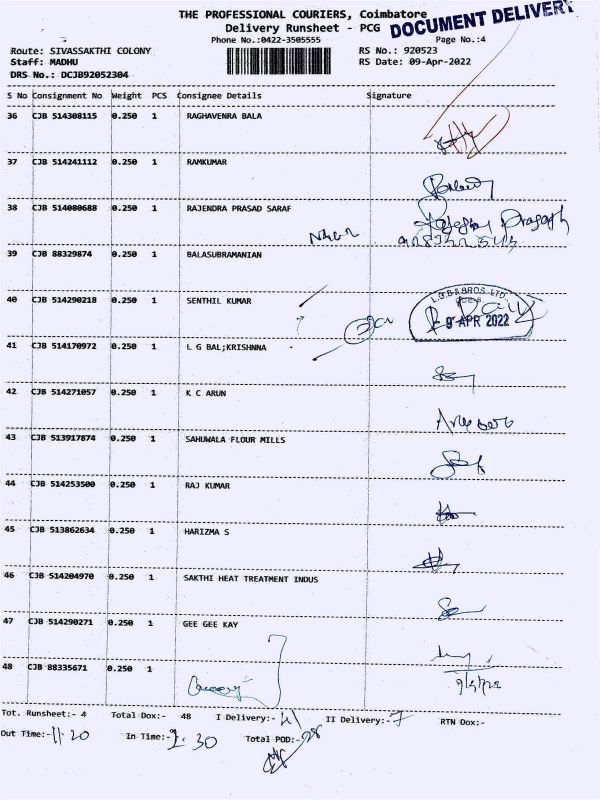 THE PROFESSIONAL COURIERS, Coimbatore
DOCUMENT DELIVERY
Delivery Runsheet - PCG
Phone No.:0422-3505555 Page No.:4
Route: SIVASSAKTHI COLONY RS No.: 920523
Staff: MADHU RS Date: 09-Apr-2022
DRS No.: DCJB92052304
S No Consignment No Weight PCS Consignee Details Signature
36 CJB 514308115 0.250 1 RAGHAVENRA BALA
37 CJB 514241112 0.250 1 RAMKUMAR
38 CJB 514080688 0.250 1 RAJENDRA PRASAD SARAF
39 CJB 88329874 0.250 1 BALASUBRAMANIAN
40 CJB 514290218 0.250 1 SENTHIL KUMAR
L.G.B & BROS. LTD.
- 9 APR 2022
41 CJB 514170972 0.250 1 L G BAL;KRISHNNA
42 CJB 514271057 0.250 1 K C ARUN
43 CJB 513917874 0.250 1 SAHUWALA FLOUR MILLS
44 CJB 514253500 0.250 1 RAJ KUMAR
45 CJB 513862634 0.250 1 HARIZMA S
46 CJB 514204970 0.250 1 SAKTHI HEAT TREATMENT INDUS
47 CJB 514290271 0.250 1 GEE GEE KAY
48 CJB 88335671 0.250 1
9/4/22
Tot. Runsheet:- 4 Total Dox:- 48 I Delivery:- 41 II Delivery:- 7 RTN Dox:-
Out Time:- 11-20 In Time:- 2-30 Total POD:-